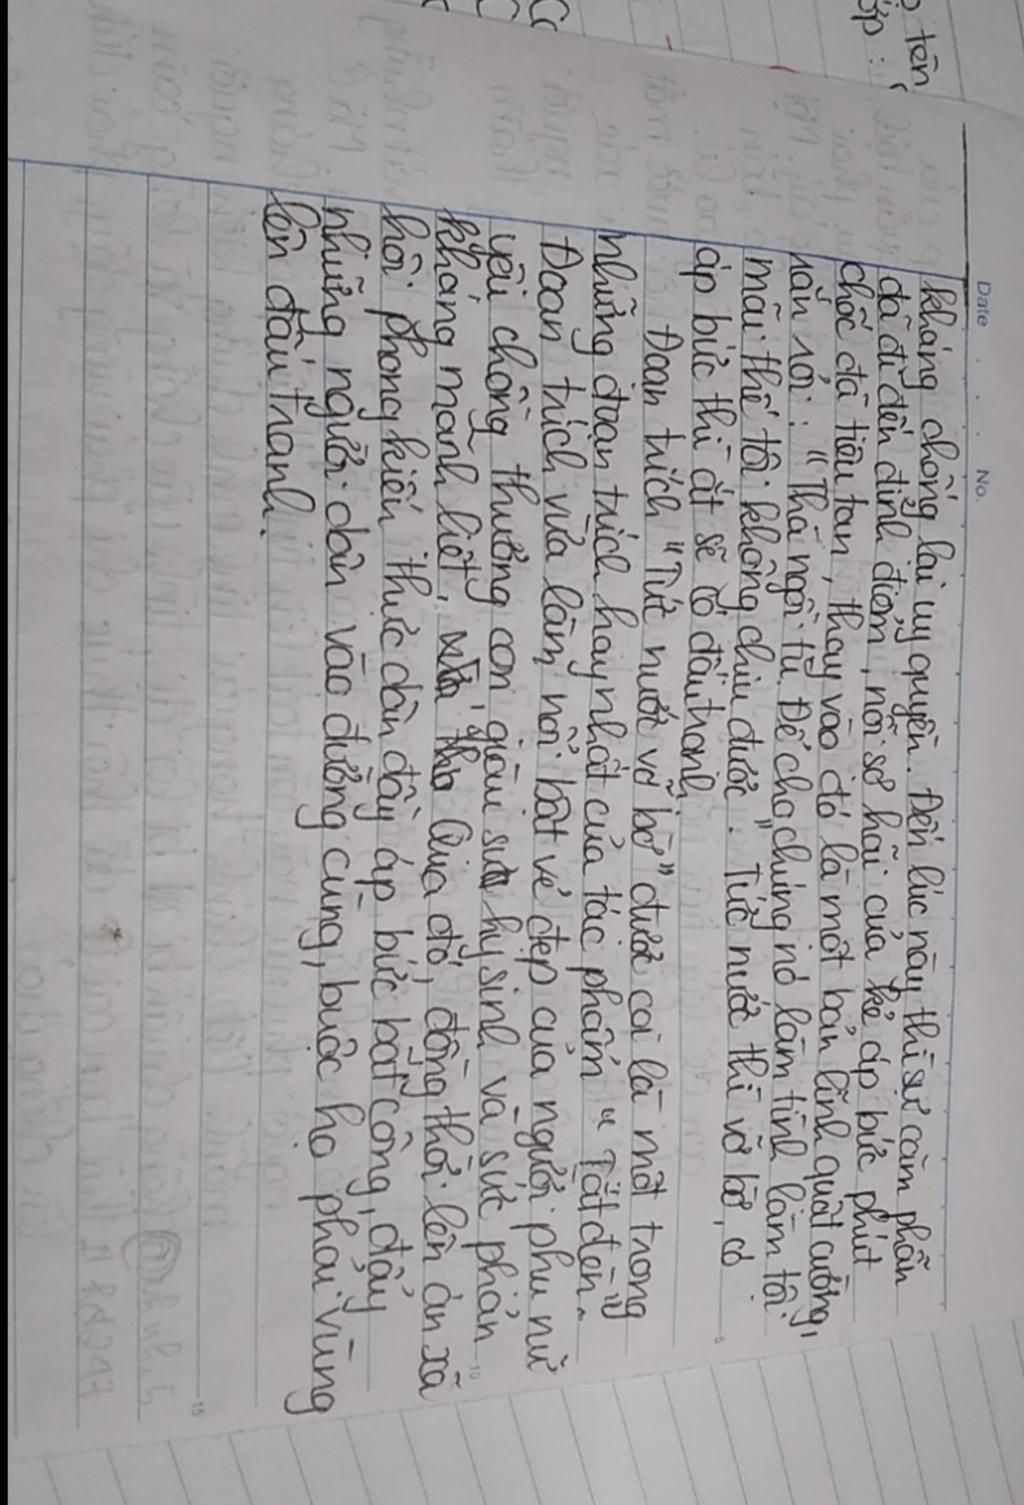 ọ tên
ớp :
Date No.
kháng chống lại uy quyền. Đến lúc này thì sự căm phẫn
đã đi đến đỉnh điểm, nỗi sợ hãi của kẻ áp bức phút
chốc đã tiêu tan, thay vào đó là một bản lĩnh quật cường,
rắn rỏi: "Thà ngồi tù. Để cho chúng nó làm tình làm tội
mãi thế tôi không chịu được". Tức nước thì vỡ bờ, có
áp bức thì ắt sẽ có đấu tranh.
Đoạn trích "Tức nước vỡ bờ" được coi là một trong
những đoạn trích hay nhất của tác phẩm "Tắt đèn".
Đoạn trích vừa làm nổi bật vẻ đẹp của người phụ nữ
yêu chồng thương con giàu sự hy sinh và sức phản
kháng mãnh liệt, Qua đó, đồng thời lên án xã
hội phong kiến thực dân đầy áp bức bất công, đẩy
những người dân vào đường cùng, buộc họ phải vùng
lên đấu tranh.
5
10
15